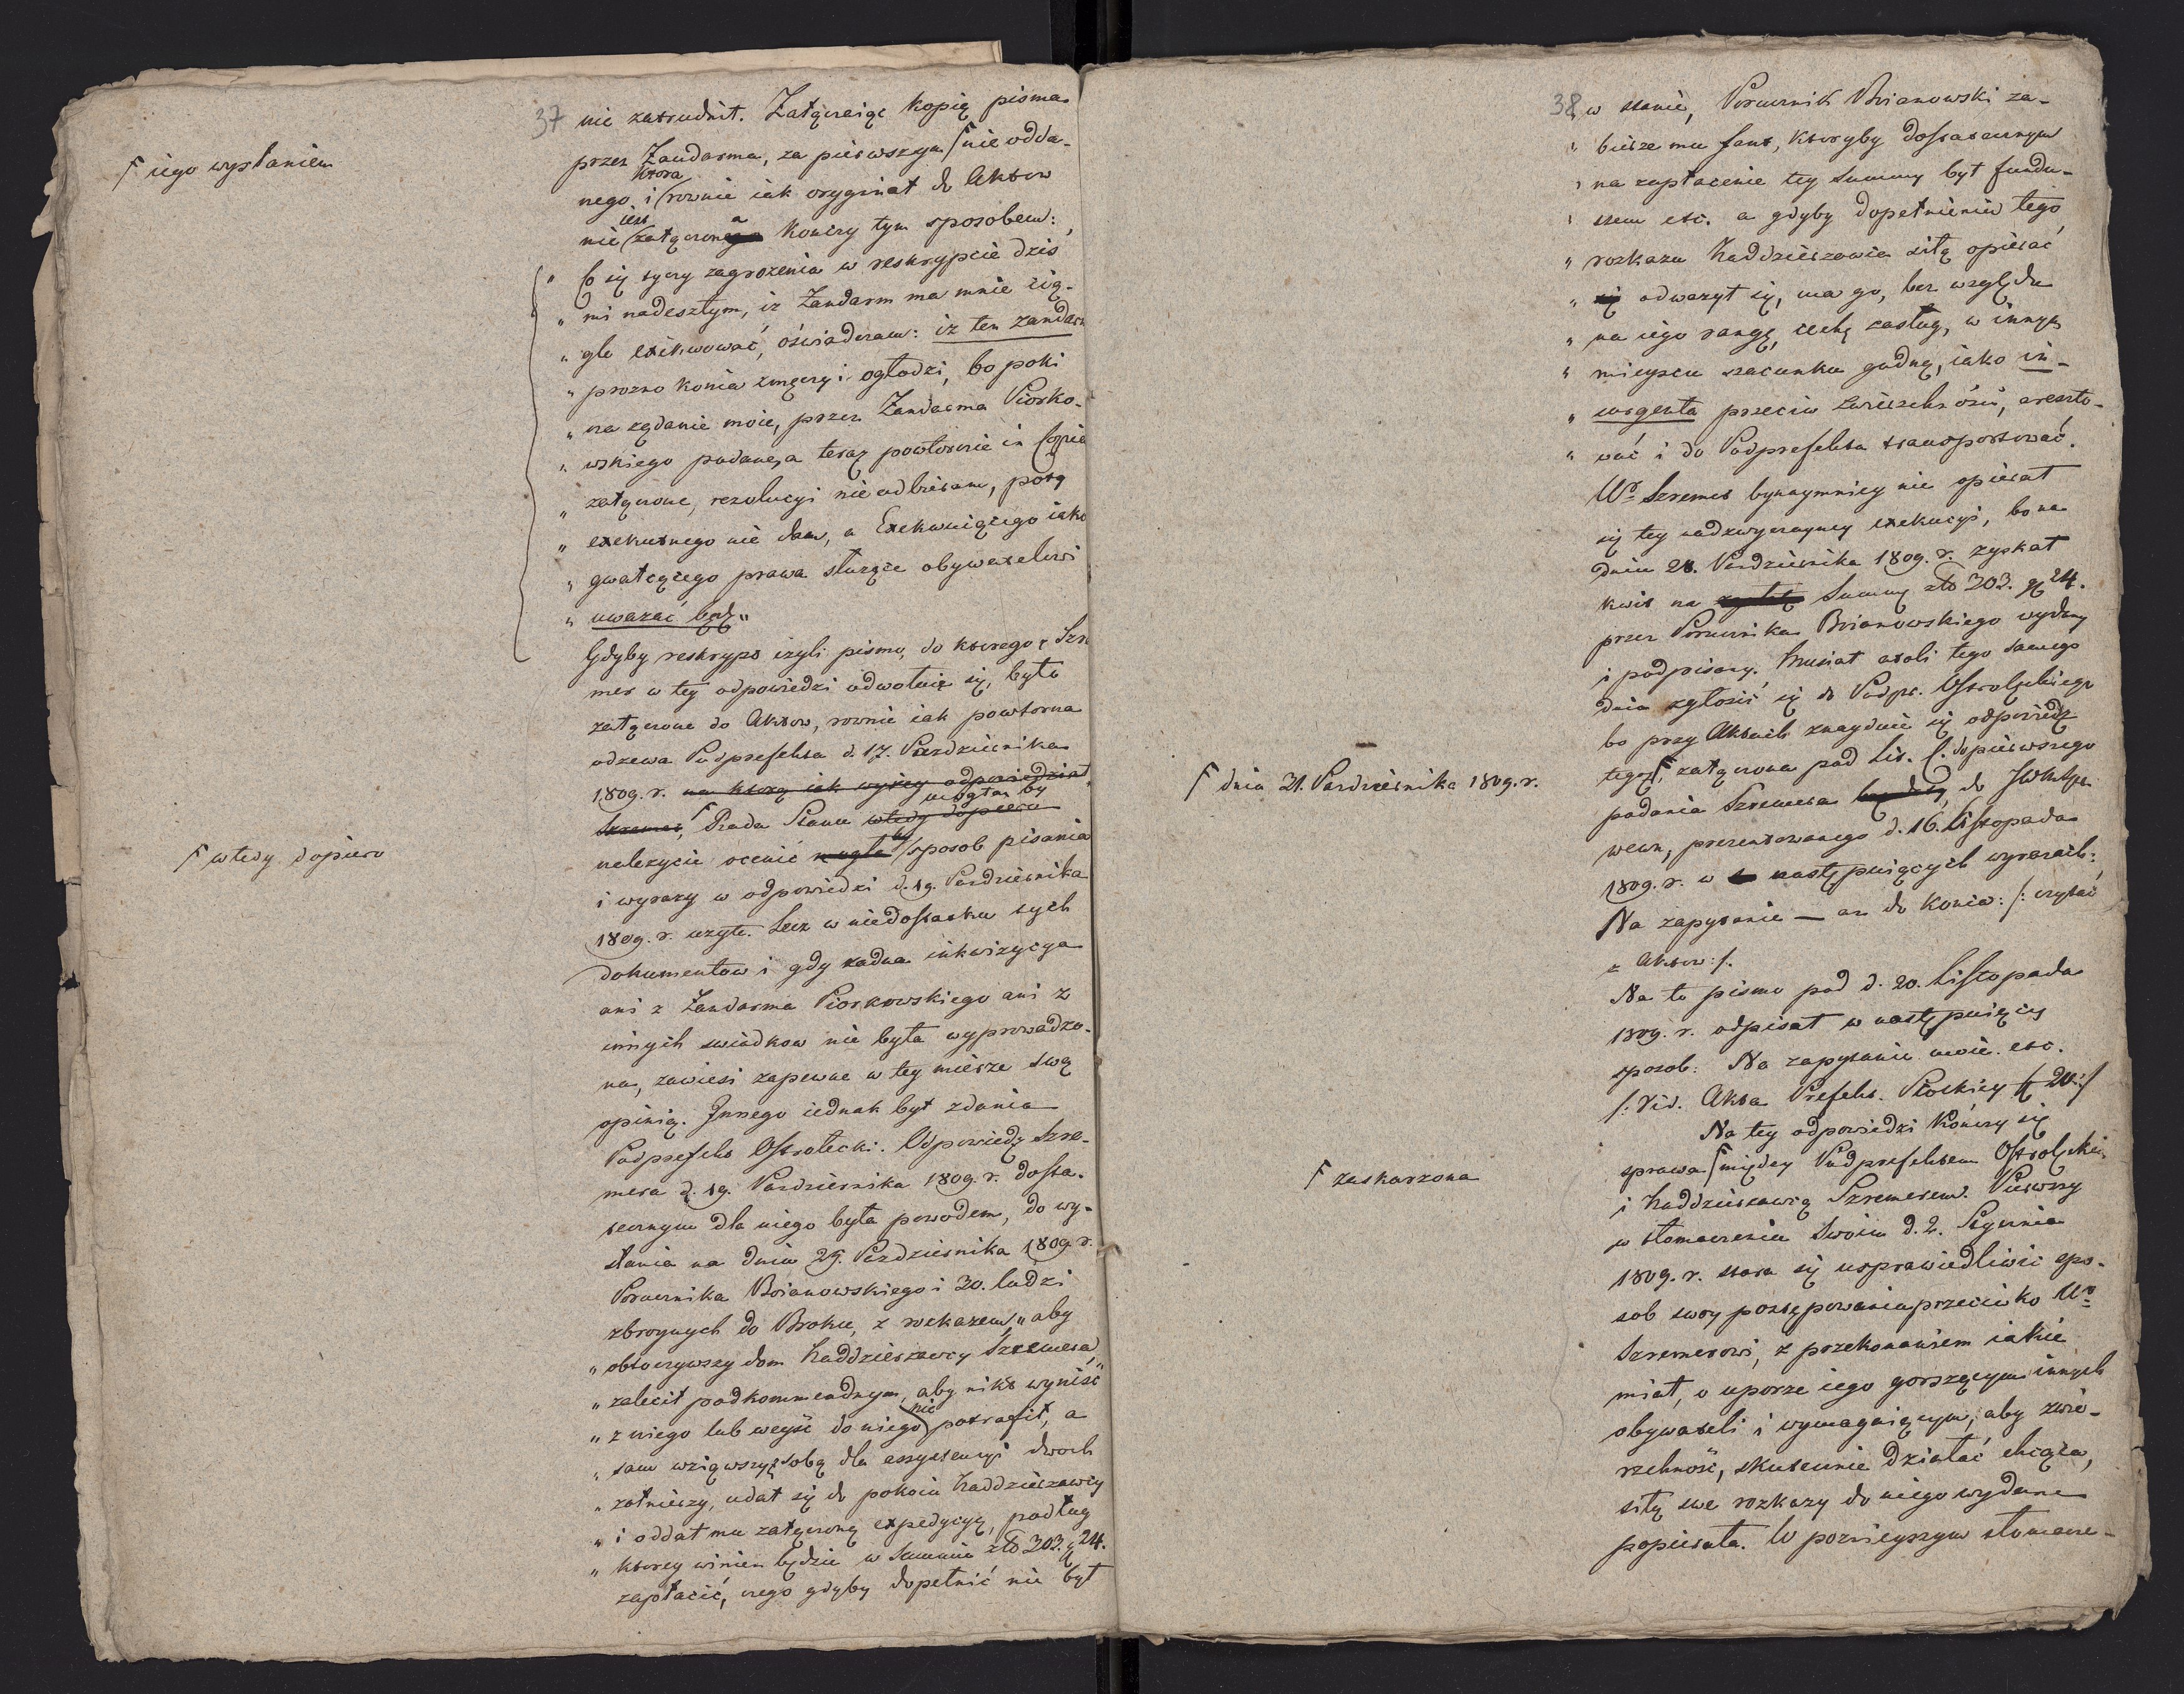 37
nie zatrudnił. Załączaiąc kopię pisma
przez Żandarma, za pierwszym ⌈ nie odda-
⌈ iego wysłaniem
nego, i (ktora rownie iak oryginał do Aktow
nie (iest załączona kończy tym sposobem:
„ Co się tyczy zagrożenia w reskrypcie dziś
„ mi nadesztym, iż Żandarm ma mnie cią-
„ gle exekwować, oświadczam: iż ten żandarm
„ prozno konia zmęczy i ogłodzi, bo poki
„ na żądanie moie, przez Żandarma Piorko-
„ wskiego podane, a teraz powtornie in Copia
„ załączone, rezolucyi nie odbieram, poty
„ exekutnego nie dam, a Exekwuiącego iako
„ gwałcącego prawa służące obywatelowi
„ uważać będę „
Gdyby reskrypt czyli pismo, do ktorego Szre
mer w tey odpowiedzi odwołuie się, było
załączone do Aktow, rownie iak powtorna
odzewa Podprefekta d. 17. Pazdziernika
1809. r. na ktorą iak wyżey odpowiedział
Szremer, ⌈ Rada Stanu wtedy dopiero mogłaby
⌈ wtedy dopiero
należycie ocenić mogła by sposob pisania
i wyrazy w odpowiedzi d. 19. Pazdziernika
1809. r. użyte. Lecz w niedostatku tych
dokumentow i gdy żadna inkwizycya
ani z Żandarma Piorkowskiego ani z
innych swiadkow nie była wyprowadzo-
na, zawiesi zapewne w tey mierze swą
opinią. Innego iednak był zdania
Podprefekt Ostrołecki. Odpowiedź Szre-
mera d. 19. Pazdziernika 1809. r. dosta-
tecznym dla niego była powodem, do wy-
słania na dniu 29. Pazdziernika 1809. r.
Porucznika Boianowskiego i 30. ludzi
zbroynych do Broku, z rozkazem, „ aby
„ obtoczywszy dom Naddzierzawcy Szremera,
„ zalecił podkommendnym, aby nikt wyniść
„ z niego lub weyść do niego nie potrafił, a
„ sam wziąwszy z sobą dla assystencyi dwoch
„ żołnierzy, udał się do pokoiu Naddzierzawcy
„ i oddał mu załączoną expedycyą, podług
„ ktorey winien będzie w Summie złt 303. g 24.
zapłacić, czego gdyby dopełnić nie był
38
„ w stanie, Porucznik Boianowski za-
„ bierze mu fant, ktoryby dostatecznym
„ na zapłacenie tey Summy był fundu-
„ szem etc. a gdyby dopełnieniu tego
„ rozkazu Naddzierzawca siłą opierać
„ się odważył się, ma go, bez względu
„ na iego rangę, cechę zasług, w innym
„ mieyscu szacunku godną, iako in-
„ surgenta przeciw zwierzchności, areszto-
„ wać i do Podprefekta transportować.
Wo Szremer bynaymniey nie opierał
się tey nadzwyczayney exekucyi, bo na
dniu 28. Pazdziernika 1809. r. zyskał
kwit na Summę złt 303. g 24.
przez Porucznika Boianowskiego wydany
i podpisany. Musiał atoli tego samego
dnia zgłosić się do Podpr. Ostrołęckiego
bo przy Aktach znayduie się odpowiedz
tegoż ⌈ załączona pod Lit. C. do pierwszego
⌈ dnia 31. Pazdziernika 1809. r.
podania Szremera do JWMSpr.
wewn, prezentowanego d. 16. Listopada
1809. r. w następuiących wyrazach:
Na zapytanie — aż do końca: /: czytać
z Aktow :/.
Na to pismo pod d. 20. Listopada
1809. r. odpisał w następuiący
sposob: Na zapytanie moie etc.
/: Vid. Akta Prefekt. Płockiey f 20 :/
Na tey odpowiedzi kończy się
sprawa ⌈ między Podprefektem Ostrołęckim
⌈ zaskarżona
i Naddzierzawcą Szremerem. Pierwszy
w tłomaczeniu swoim d. 2. Stycznia
1809. r. stara się usprawiedliwić spo-
sob swoy postępowania przeciwko Wo
Szremerowi, z przekonaniem iakie
miał, o uporze iego gorszącym innych
obywateli i wymagaiącym, aby zwie-
rzchność, skutecznie działać chcąca,
siłą swe rozkazy do niego wydane
popierała. W poznieyszym tłomacze-